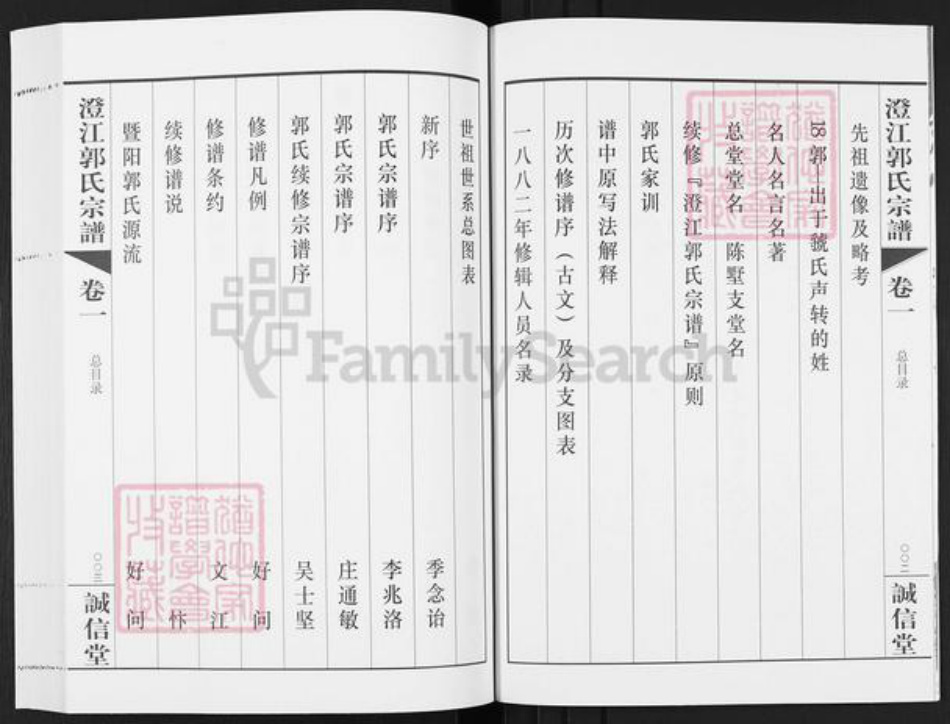 澄江郭氏宗譜
卷一
总目录
〇〇二
誠信堂
先祖遗像及略考
18郭——出于虢氏声转的姓
名人名言名著
总堂堂名 陈墅支堂名
续修『澄江郭氏宗谱』原则
郭氏家训
谱中原写法解释
历次修谱序（古文）及分支图表
一八八二年修辑人员名录
世祖世系总图表
新序 季念诒
郭氏宗谱序 李兆洛
郭氏宗谱序 庄通敏
郭氏续修宗谱序 吴士坚
修谱凡例 好问
修谱条约 文江
续修谱说 怀
暨阳郭氏源流 好问
澄江郭氏宗譜
卷一
总目录
〇〇三
誠信堂
FamilySearch